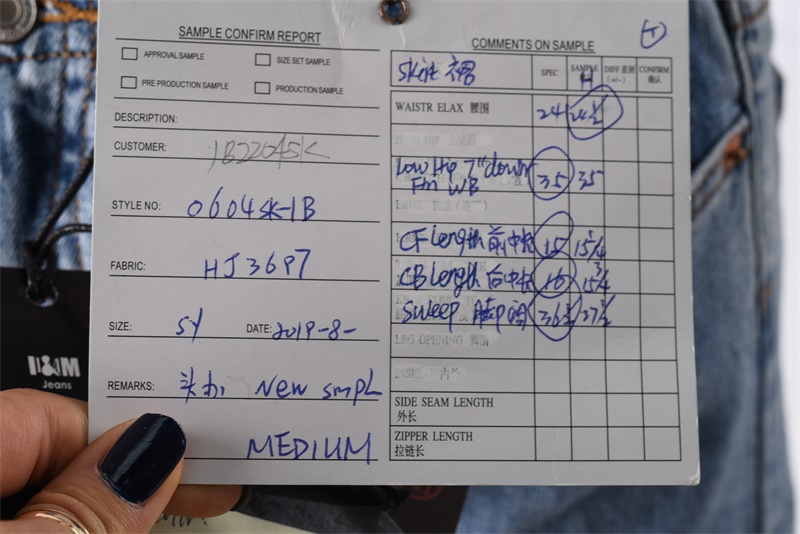 SAMPLE CONFIRM REPORT
APPROVAL SAMPLE
SIZE SET SAMPLE
PRE PRODUCTION SAMPLE
PRODUCTION SAMPLE
DESCRIPTION:
CUSTOMER: 1B22045K
STYLE NO: 0604SK-1B
FABRIC: HJ36P7
SIZE: SY DATE: 2019-8-
REMARKS: 头办 New smpl
MEDIUM
COMMENTS ON SAMPLE
Skit 裙 SPEC SAMPLE DIFF 差别 (+/-) CONFIRM 确认
H
WAISTR ELAX 腰围 24 24 1/2
Low Hip 7" down 35 35
Fm WB
CF Length 前中长 15 15 1/4
CB Length 后中长 16 15 3/4
Sweep 36 1/2 37 1/2
LEG OPENING
内长
SIDE SEAM LENGTH
外长
ZIPPER LENGTH
拉链长
I&M
Jeans